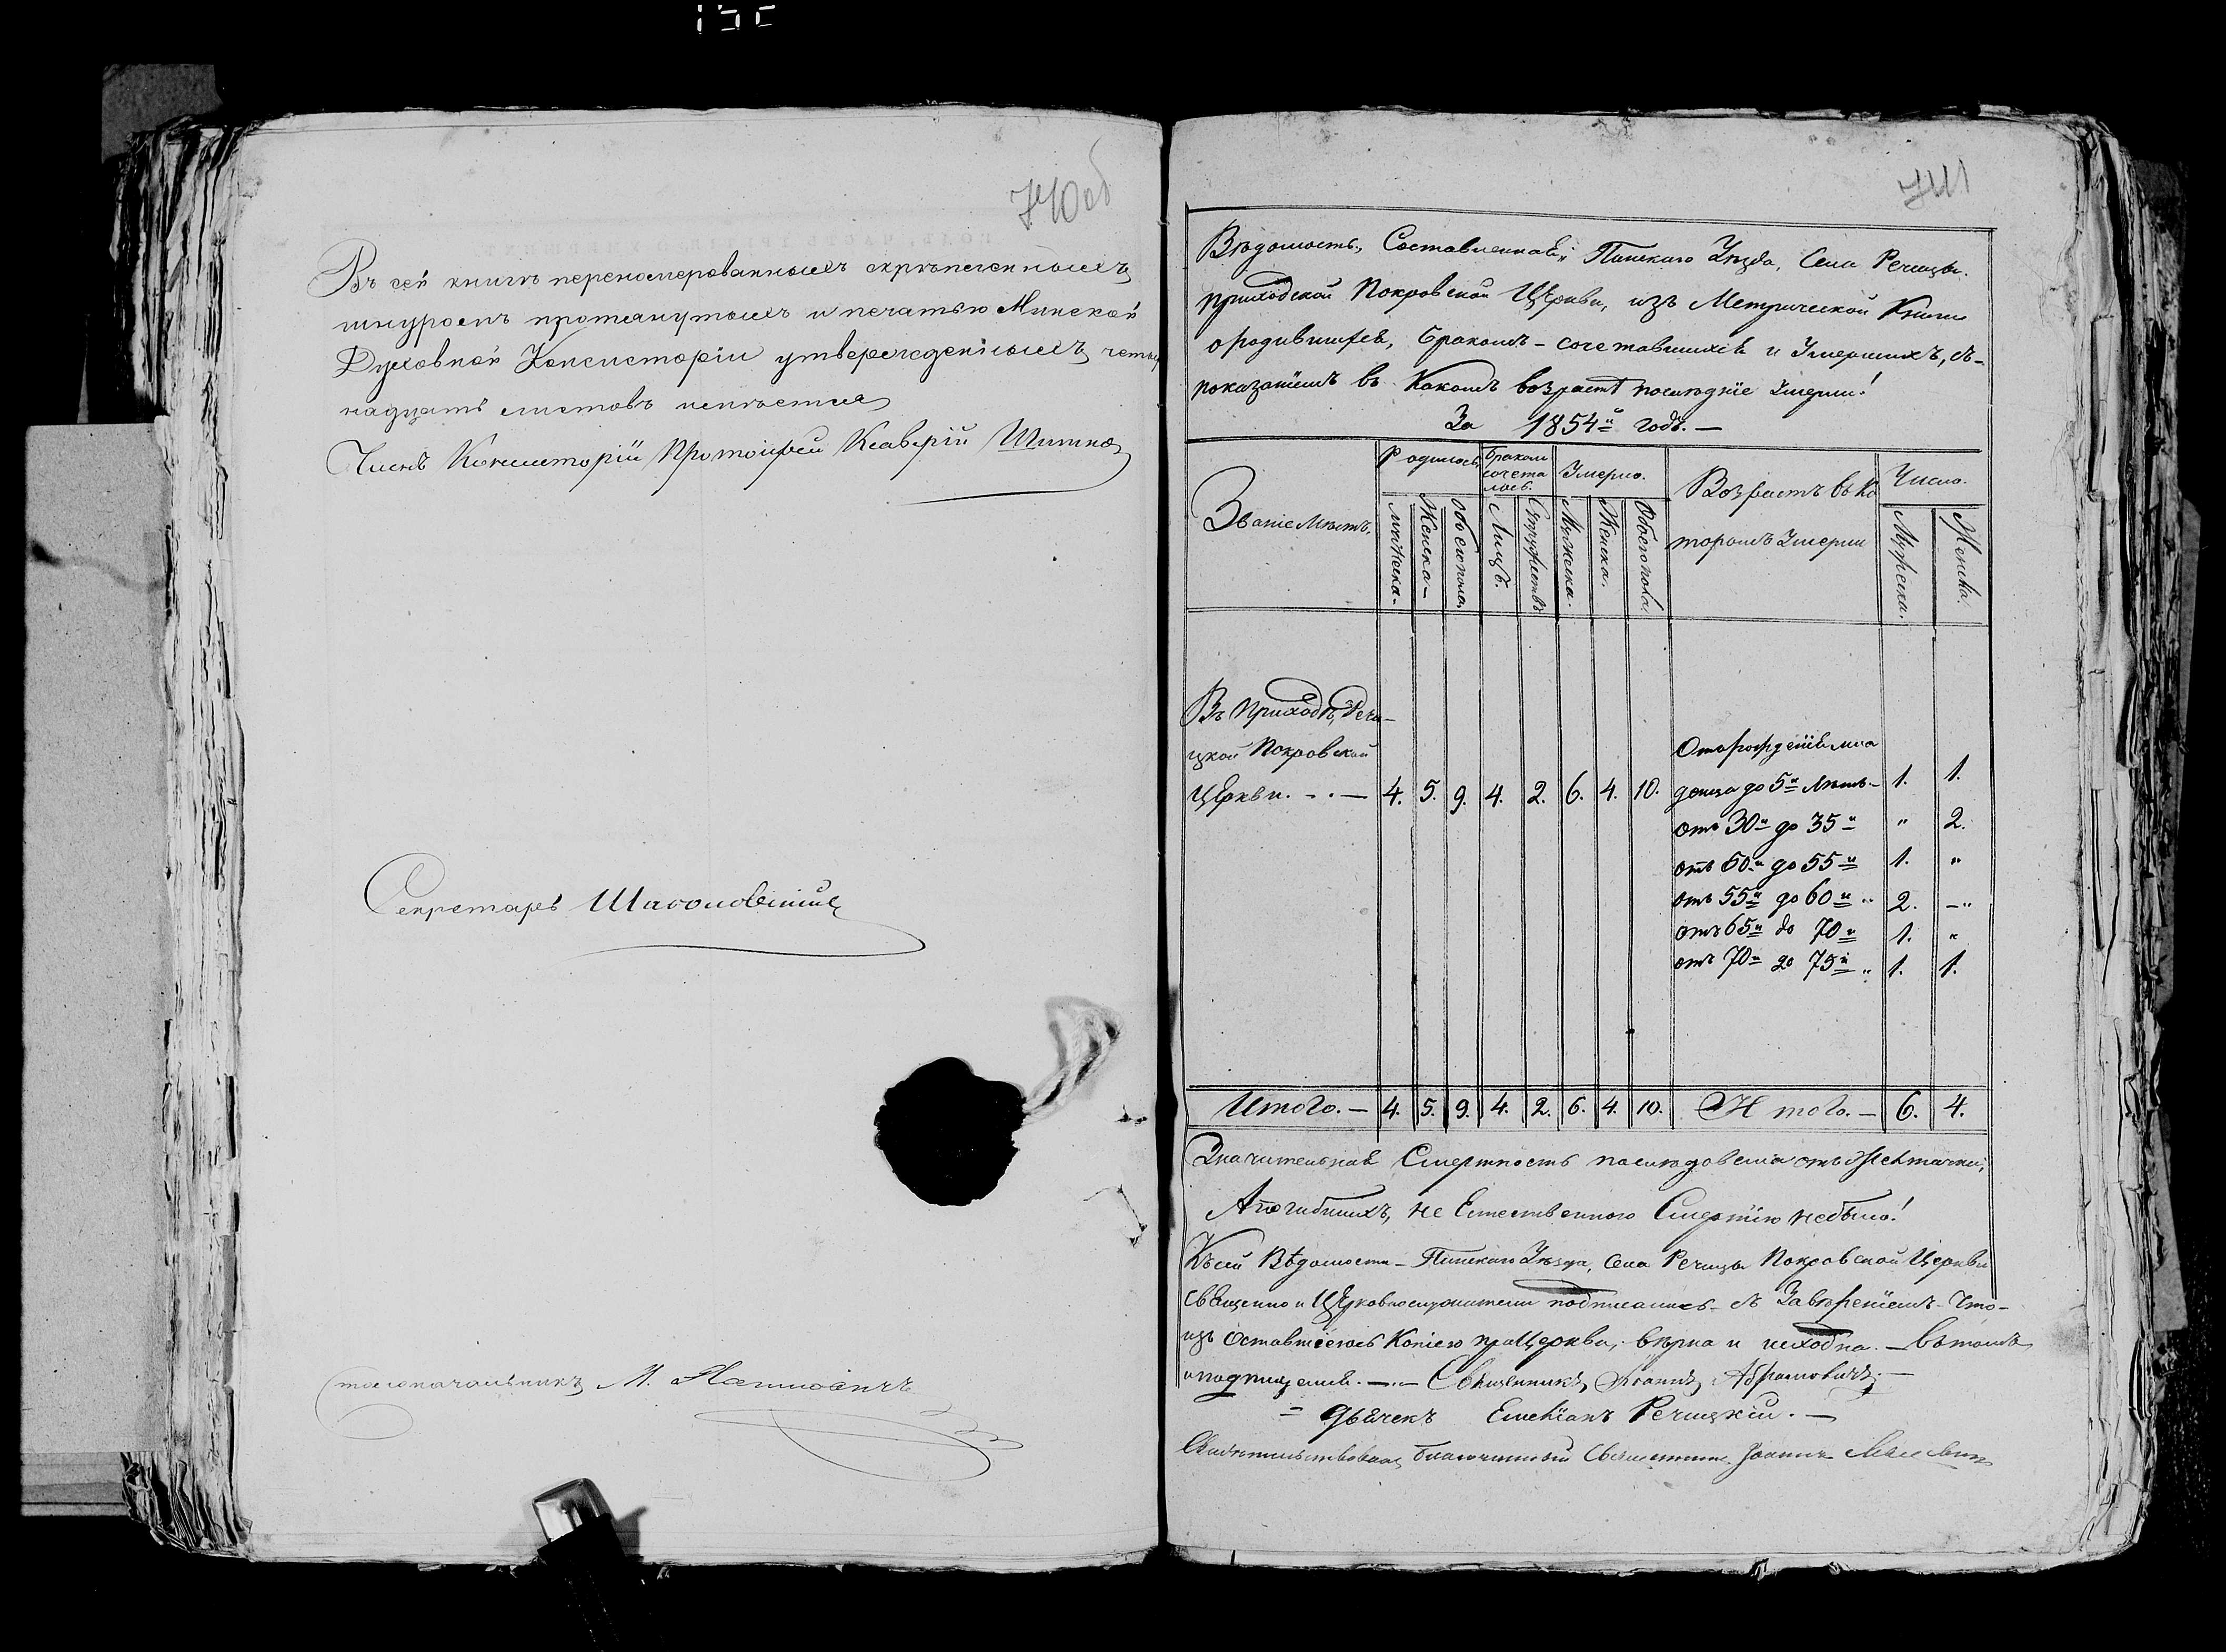 740об
Въ сей книгѣ перенумерованныхъ скрѣпленныхъ
шнуромъ протянутыхъ и печатью Минской
Духовной Консисторіи утвержденныхъ четыр
надцать листовъ имѣется
Членъ Консисторіи Протоіерей Ксаверій
Секретарь
Столоначальникъ М.
741
Вѣдомость, Составленная, Пинскаго Уѣзда, Села Речицы.
приходской Покровской Церкви, изъ Метрической Книги
ородившихся, бракомъ-сочетавшихся и Умершихъ, съ-
показаніемъ въ Какомъ возрастѣ послѣдніе Умерли!
За 1854й годъ. —
Званіе Мѣстъ.
Родилось
Бракомъ сочета лось.
Умерло.
Возрастъ въ ко
торомъ Умерли
Число.
мужеска-
Женска-
обоего пола
Лицъ.
Супружествъ
Мужеска.
Женска.
Обоего пола.
Мужеска.
Женска.
Въ Приходѣ, Речи-
цкой Покровской
Церкви. - . — 4. 5. 9. 4. 2. 6. 4. 10.
Отъ рожденія мла
денца до 5и лѣтъ- 1. 1.
отъ 30и до 35и " 2.
отъ 50и до 55и 1. "
отъ 55и до 60и " 2. -"
отъ 65и до 70и 1. "
отъ 70и до 75и " 1. 1.
Итого. — 4. 5. 9. 4. 2. 6. 4. 10. Итого. — 6. 4.
Значительная Смертность послѣдовала отъ
А погибшихъ, не Естественною Смертію небыло!
Къ сей Вѣдомости - Пинскаго Уѣзда, села Речицы Покровской Церкви
священно и Церковнослужители подписались - съ Завѣреніемъ - что-
изъ оставшеюсь Копіею при Церкви, вѣрна и исходна. — въ томъ
и подпишемся. —.— Священникъ, Іоаннъ, Абрамовичъ; —
= дьячекъ Емеліанъ Речицкій. —
Свидѣтельствовалъ Благочинный Священникъ Іоаннъ